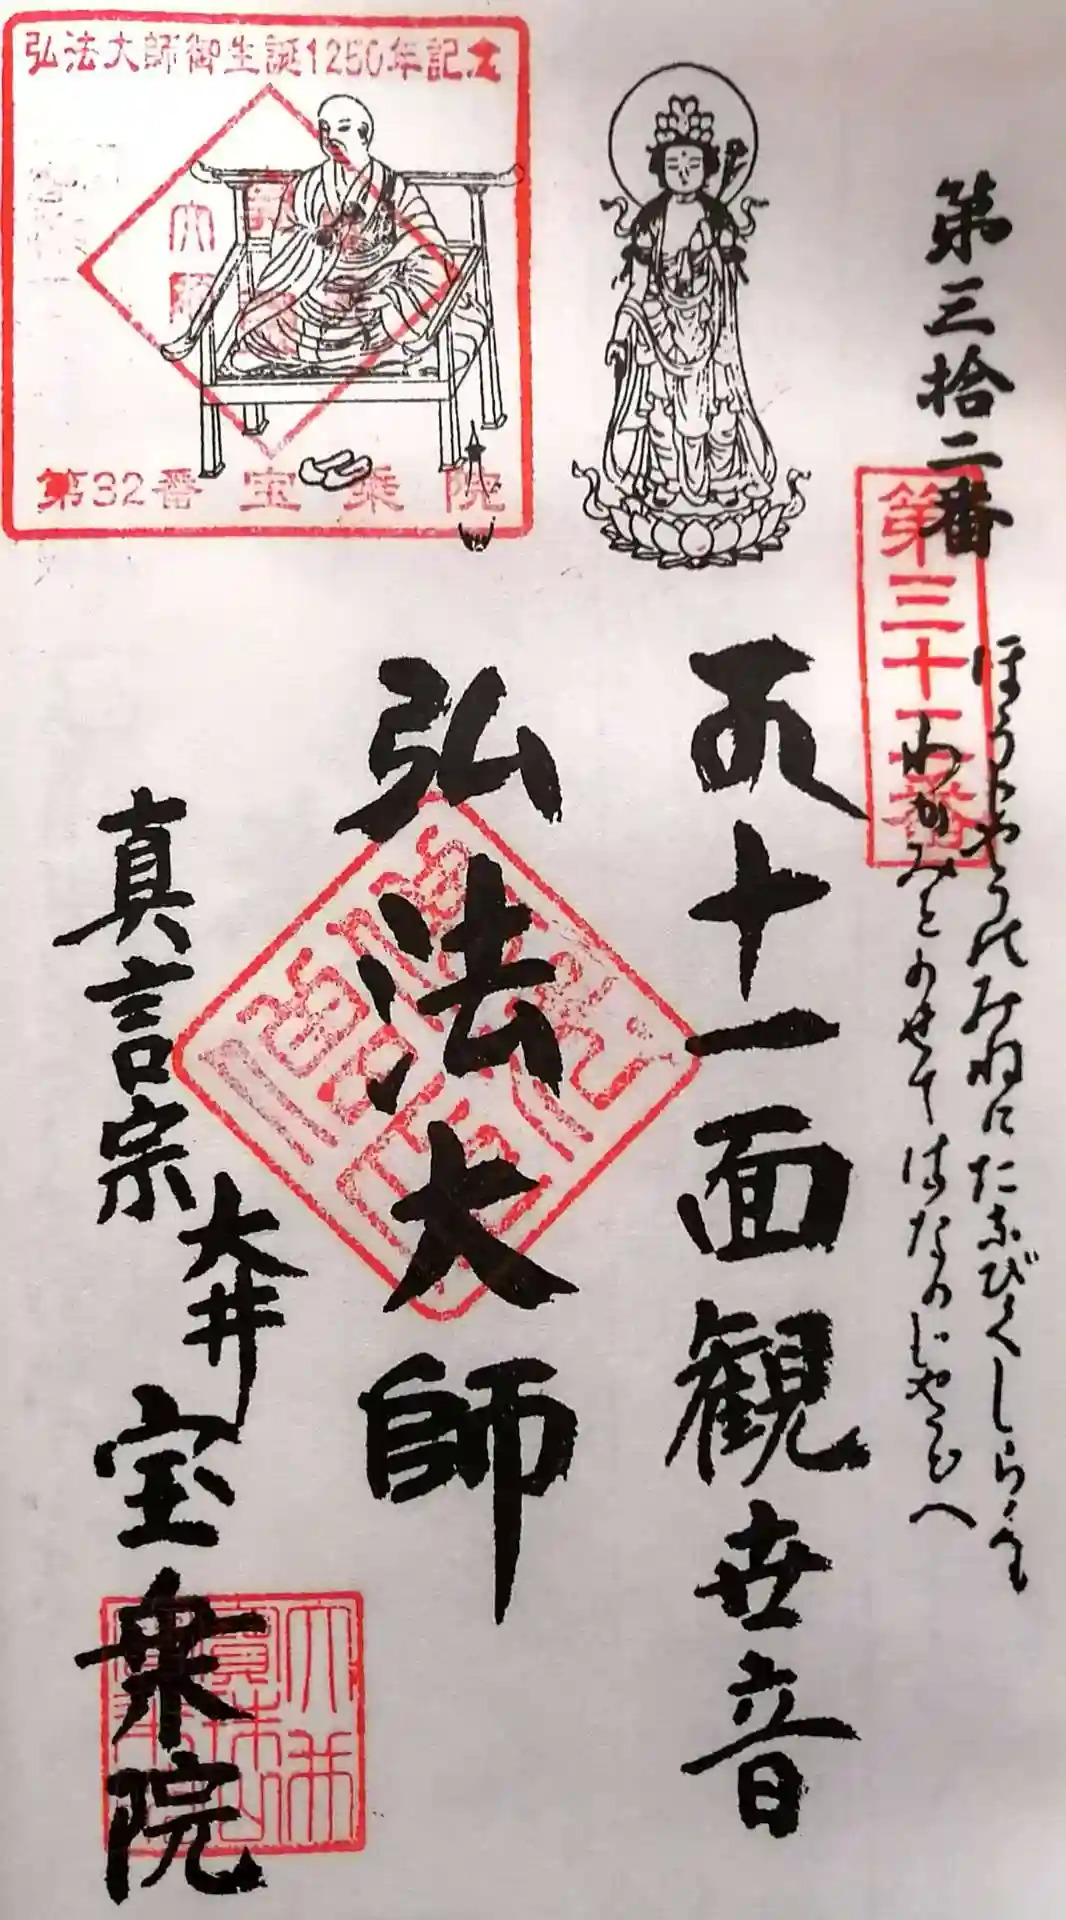 第三拾二番
第三十二番
ほうしやうのみねにたなびくしらくも
十一面観世音
弘法大師
真言宗
大井
宝乗院
弘法大師御生誕1250年記念
第32番 宝乗院